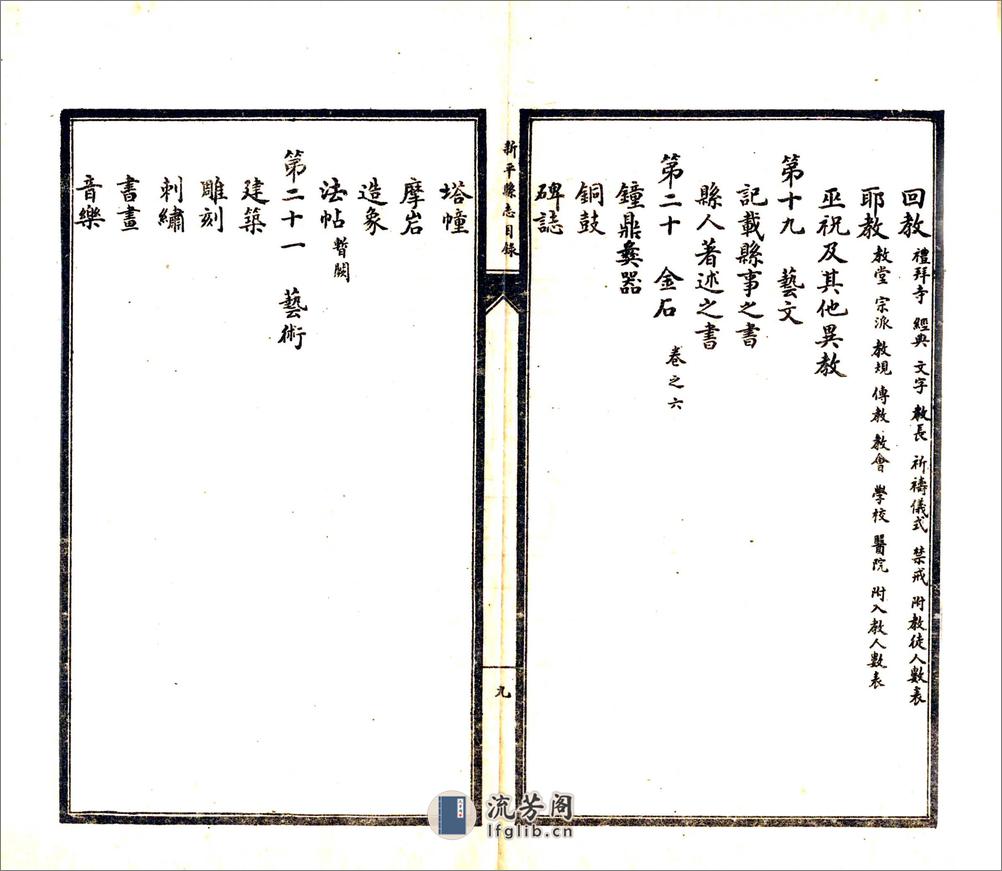 回教 禮拜寺 經典 文字 教長 祈禱儀式 禁戒 附教徒人數表
耶教 教堂 宗派 教規 傳教 教會 學校 醫院 附入教人數表
巫祝及其他異教
第十九 藝文
記載縣事之書
縣人著述之書
第二十 金石 卷之六
鐘鼎彝器
銅鼓
碑誌
新平縣志目錄
九
塔幢
摩岩
造象
法帖 暫闕
第二十一 藝術
建築
雕刻
刺繡
書畫
音樂
流芳阁
lfglib.cn